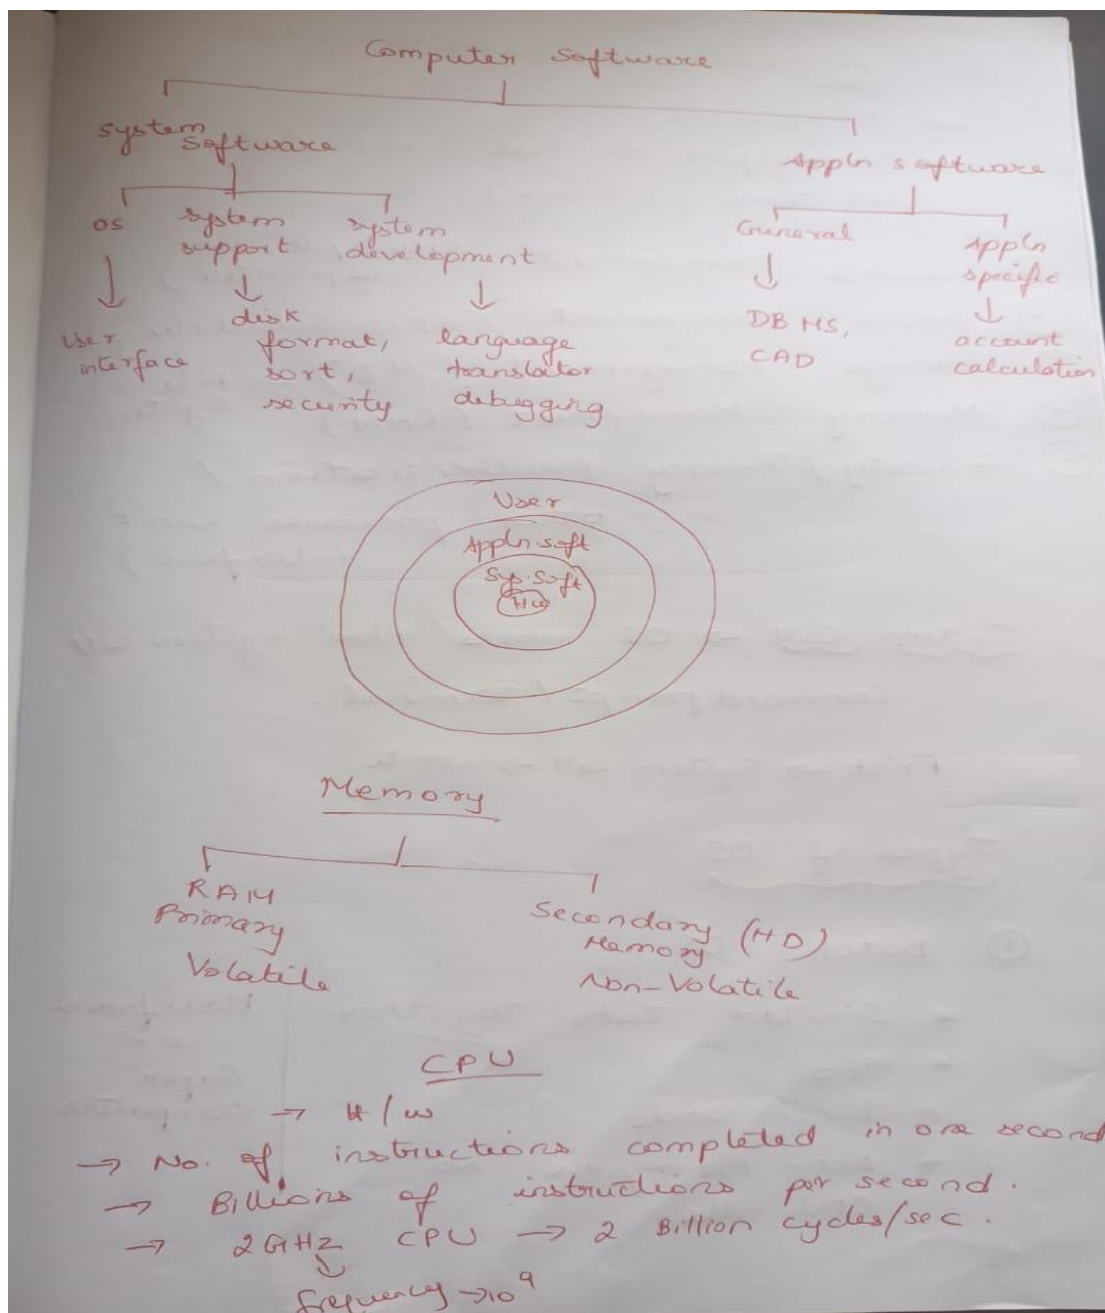 Computer Software
System Software
Appln software
OS
system support
system development
General
Appln specific
User interface
disk format, sort, security
language translator debugging
DBMS, CAD
account calculation
User
Appln.soft
Sys.Soft
HW
Memory
RAM
Primary
Volatile
Secondary (HD)
Memory
Non-Volatile
CPU
→ H/w
→ No. of instructions completed in one second
→ Billions of instructions per second.
→ 2GHz CPU → 2 Billion cycles/sec.
↓
frequency → 10⁹